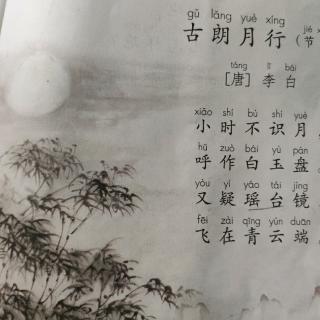 gǔ lǎng yuè xíng jié
古朗月行（节
táng lǐ bái
[唐] 李白
xiǎo shí bù shí yuè
小时不识月，
hū zuò bái yù pán
呼作白玉盘。
yòu yí yáo tái jìng
又疑瑶台镜，
fēi zài qīng yún duān
飞在青云端。